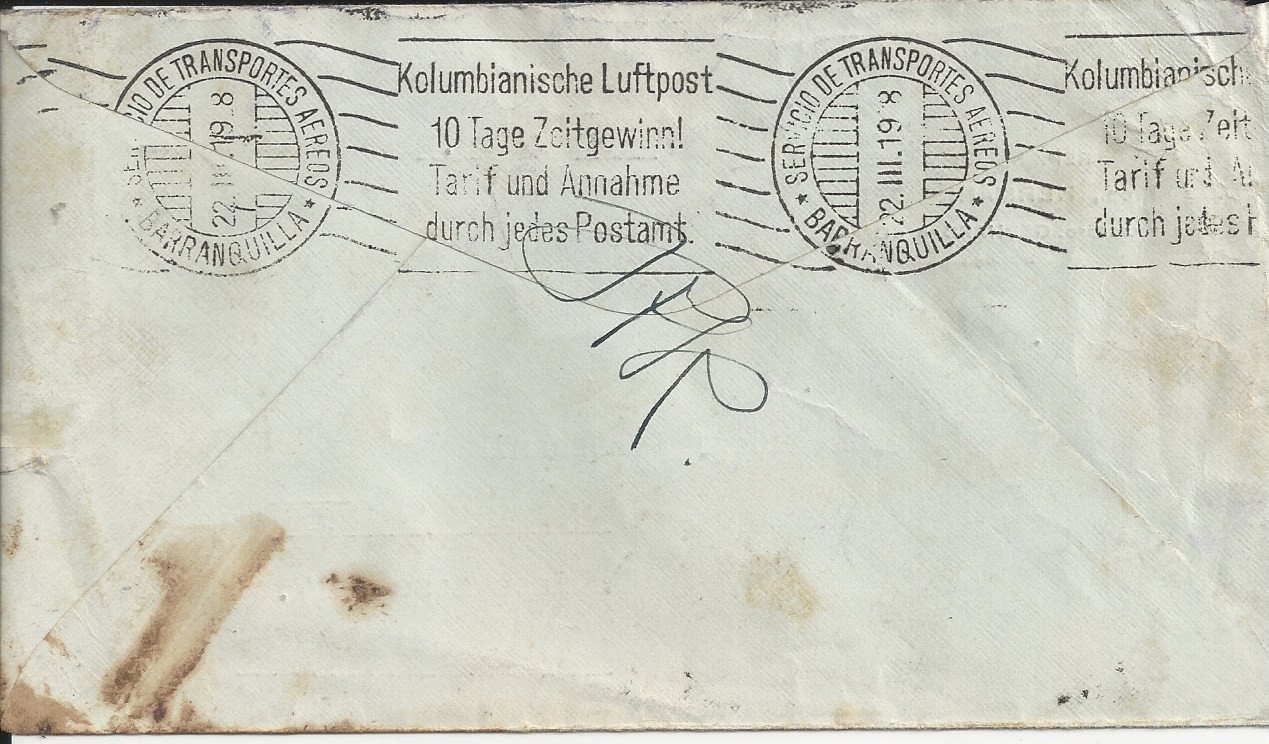 SERVICIO DE TRANSPORTES AEREOS
BARRANQUILLA
Kolumbianische Luftpost
10 Tage Zeitgewinn!
Tarif und Annahme
durch jedes Postamt.
SERVICIO DE TRANSPORTES AEREOS
22.III.19 8
BARRANQUILLA
Kolumbianisch
10 Tage Zeit
Tarif und A
durch jedes P